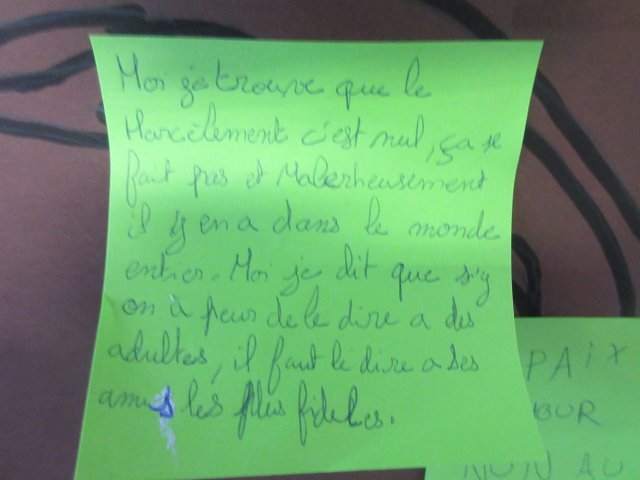 Moi je trouve que le
Harcèlement c'est nul, ça se
fait pas et Malerheusement
il y en a dans le monde
entier. Moi je dit que s'y
on à peur de le dire a des
adultes, il faut le dire a ses
amis les plus fideles.
PAiX
NON AU